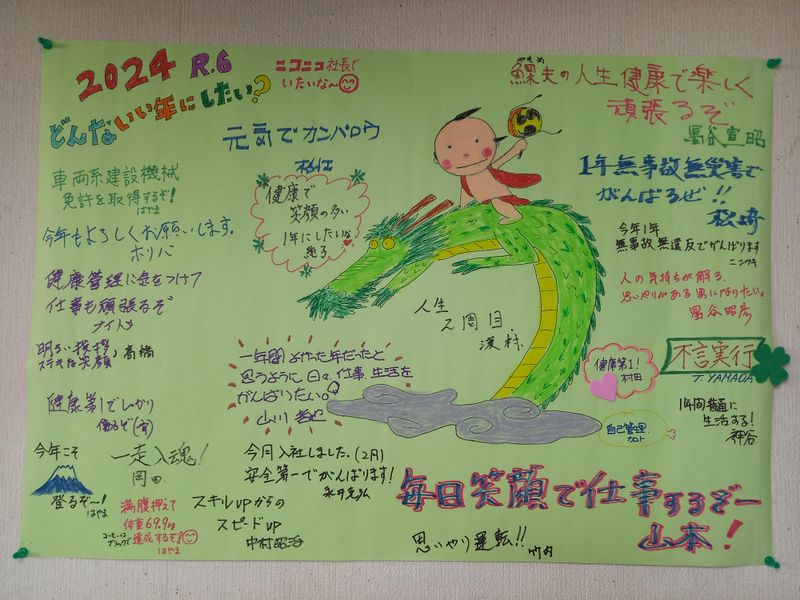 2024 R.6
どんないい年にしたい?
ニコニコ社長で
いたいな〜
元気でガンバロウ
鰥夫の人生健康で楽しく
やもめ
頑張るぞ
車両系建設機械
免許を取得するぞ!
はやま
健康で
笑顔の多い
1年にしたいな
1年無事故無災害で
がんばるぜ!!
松崎
今年もよろしくお願いします。
ホリバ
今年1年
無事故 無違反でがんばります
ニシワキ
健康管理に気をつけて
仕事も頑張るぞ
ナイトウ
人の気持ちが解る、
思いやりがある男になりたい。
人生
2周目
明るい挨拶
ステキな笑顔 高橋
一年間よかった年だったと
思うように日々、仕事、生活を
がんばりたい。
山川
健康第1!
村田
不言実行
T.YAMADA
健康第1でしっかり
働るぞ
1年間普通に
生活する!
神谷
自己管理
カトト
今年こそ
登るぞ〜!
はやま
一走入魂!
岡田
今月入社しました。(2月)
安全第一でがんばります!
満腹押えて
体重69.9kg
コーヒーはブラックで
達成するぞ!
はやま
スキルupからの
スピードup
中村
毎日笑顔で仕事するぞー
山本!
思いやり運転!! 竹内